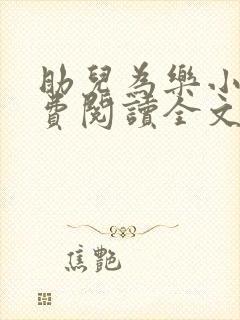 助兒為樂小
費閱讀全文
焦艷